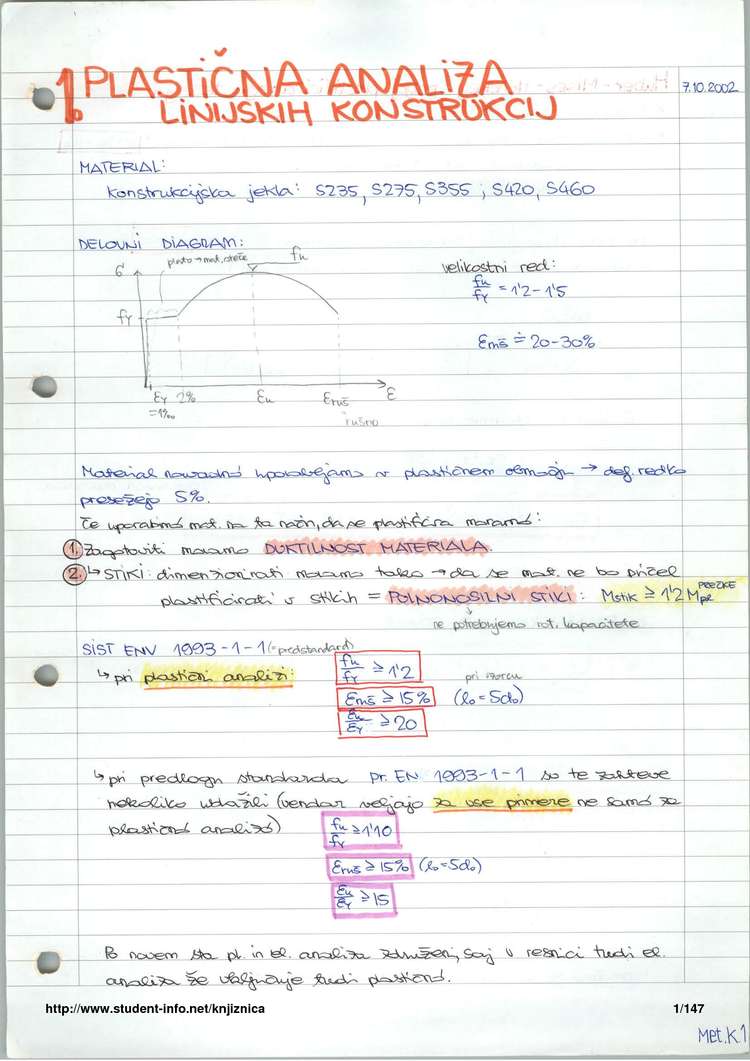 1. PLASTIČNA ANALIZA
LINIJSKIH KONSTRUKCIJ
7.10.2002
MATERIAL:
Konstrukcijska jekla: S235, S275, S355 ; S420, S460
DELOVNI DIAGRAM:
plato → mat. steče
fu
σ
fy
εy 2% εu εruš ε
=1‰
rušno
velikostni red:
fu/fy = 1'2 - 1'5
εruš ≐ 20-30%
Material navadno uporabljamo v plastičnem območju → def. redko
presežejo 5%.
Če uporabimo mat. na ta način, da se plastificira moramo:
1. Zagotoviti moramo DUKTILNOST MATERIALA.
2. ↳ STIKI: dimenzionirati moramo tako → da se mat. ne bo pričel
plastificirati v stikih = POLNONOSILNI STIKI: Mstik ≥ 1'2 Mpl PREČKE
ne potrebujemo rot. kapacitete
SIST ENV 1993-1-1 (=predstandard)
↳ pri plastični analizi:
fu/fy ≥ 1'2
εruš ≥ 15% (lo = 5do)
pri vzorcu
εu/εy ≥ 20
↳ pri predlogu standarda pr. EN 1993-1-1 so te zahteve
nekoliko ublažili (vendar veljajo za vse primere ne samo za
plastično analizo)
fu/fy ≥ 1'10
εruš ≥ 15% (lo = 5do)
εu/εy ≥ 15
Po novem sta pl. in el. analiza združeni, saj v resnici tudi el.
analiza že vključuje tudi plastično.
http://www.student-info.net/knjiznica
1/147
Met.K 1